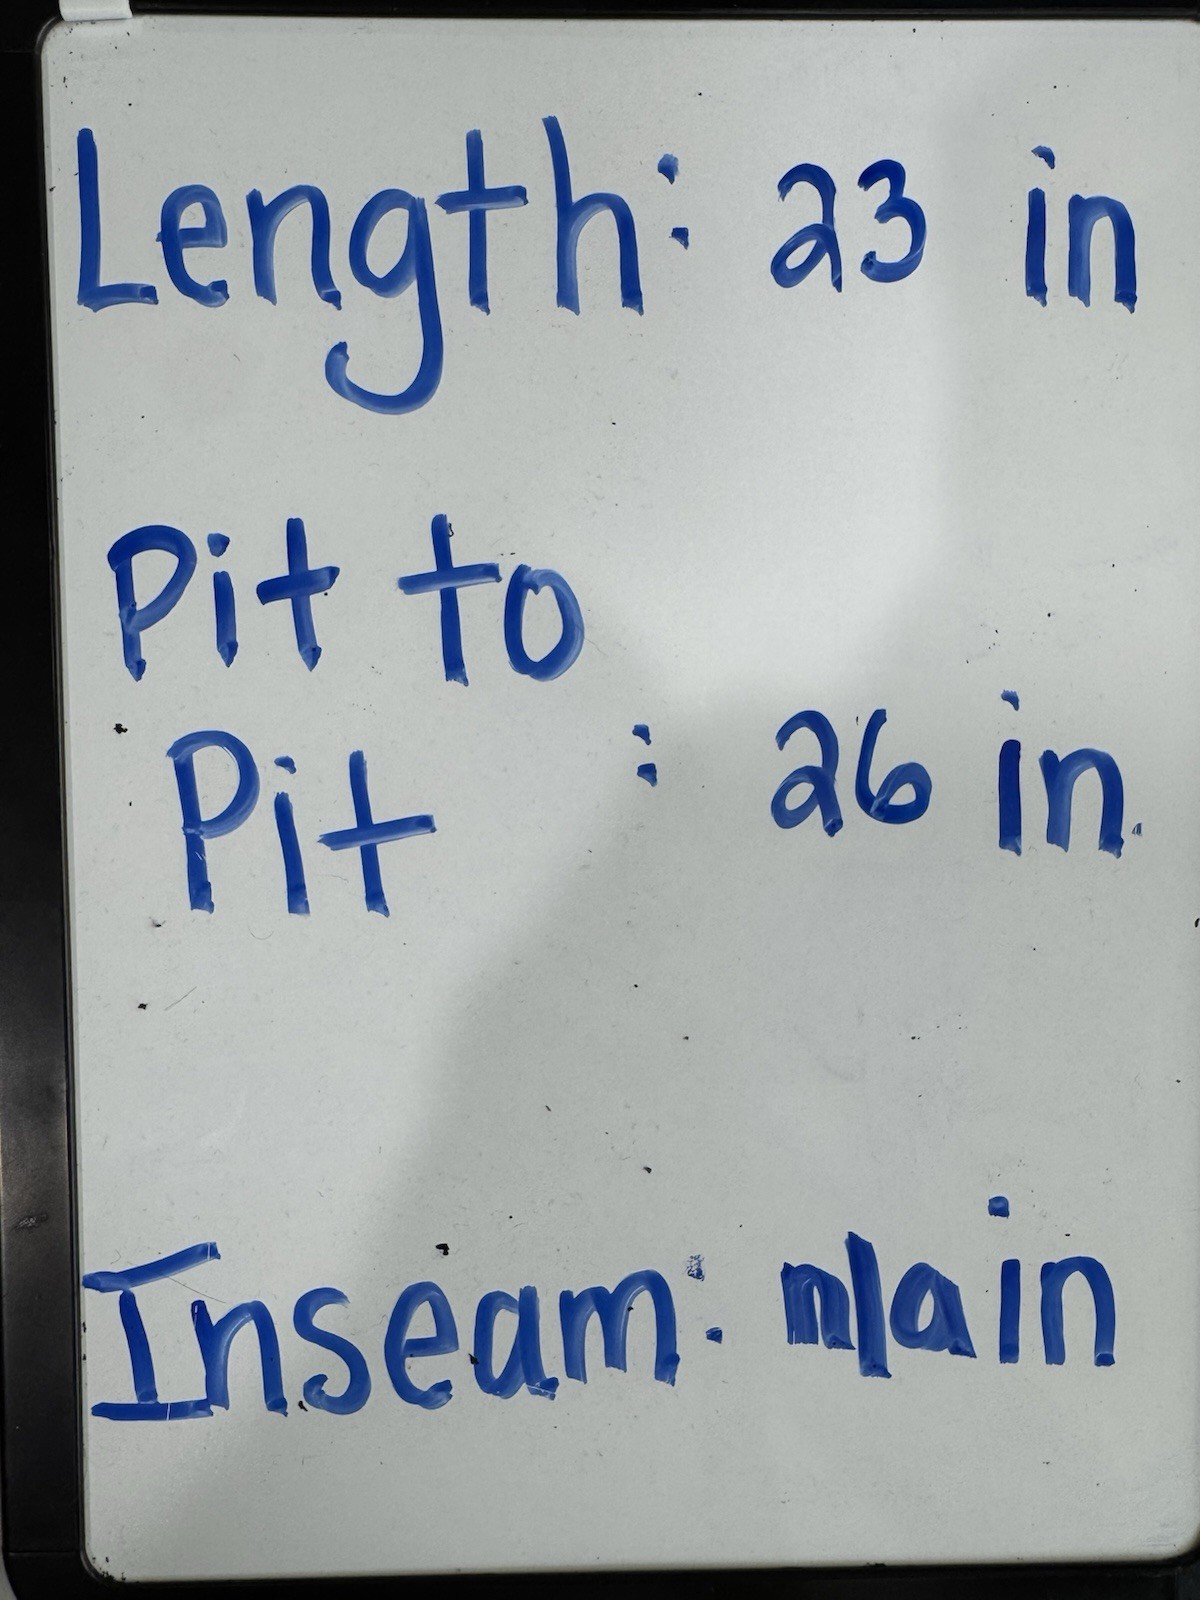 Length: 23 in
Pit to
Pit : 26 in
Inseam: n/a in